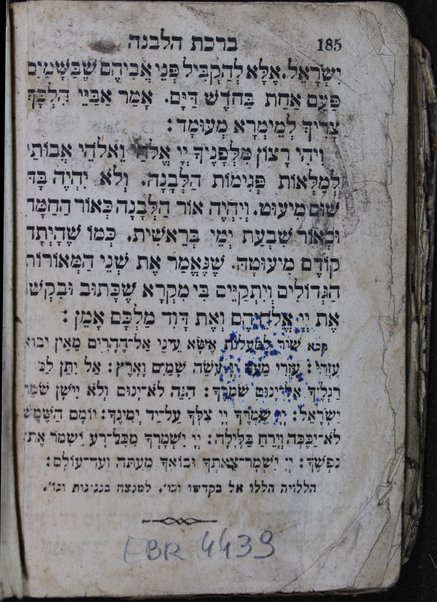 185 ברכת הלבנה
יִשְׂרָאֵל. אֶלָּא לְהַקְבִּיל פְּנֵי אֲבִיהֶם שֶׁבַּשָּׁמַיִם
פַּעַם אַחַת בַּחֹדֶשׁ דַּיָּם. אָמַר אַבַּיֵי הִלְכָּךְ
צָרִיךְ לְמֵימְרָא מְעוּמָד:
וִיהִי רָצוֹן מִלְּפָנֶיךָ יְיָ אֱלֹהַי וֵאלֹהֵי אֲבוֹתַי
לְמַלְּאוֹת פְּגִימוֹת הַלְּבָנָה. וְלֹא יִהְיֶה בָּהּ
שׁוּם מִיעוּט. וִיהְיֶה אוֹר הַלְּבָנָה כְּאוֹר הַחַמָּה
וּכְאוֹר שִׁבְעַת יְמֵי בְרֵאשִׁית. כְּמוֹ שֶׁהָיְתָה
קוֹדֶם מִיעוּטָהּ. שֶׁנֶּאֱמַר אֶת שְׁנֵי הַמְּאוֹרוֹת
הַגְּדוֹלִים וְיִתְקַיֵּים בִּי מִקְרָא שֶׁכָּתוּב וּבִקְשׁוּ
אֶת יְיָ אֱלֹהֵיהֶם וְאֶת דָּוִד מַלְכָּם אָמֵן:
קכא שִׁיר לַמַּעֲלוֹת אֶשָּׂא עֵינַי אֶל־הֶהָרִים מֵאַיִן יָבוֹא
עֶזְרִי: עֶזְרִי מֵעִם יְיָ עֹשֵׂה שָׁמַיִם וָאָרֶץ: אַל יִתֵּן לַמּוֹט
רַגְלֶךָ אַל־יָנוּם שֹׁמְרֶךָ: הִנֵּה לֹא־יָנוּם וְלֹא יִישָׁן שׁוֹמֵר
יִשְׂרָאֵל: יְיָ שֹׁמְרֶךָ יְיָ צִלְּךָ עַל־יַד יְמִינֶךָ: יוֹמָם הַשֶּׁמֶשׁ
לֹא־יַכֶּכָּה וְיָרֵחַ בַּלָּיְלָה: יְיָ יִשְׁמָרְךָ מִכָּל־רָע יִשְׁמֹר אֶת־
נַפְשֶׁךָ: יְיָ יִשְׁמָר־צֵאתְךָ וּבוֹאֶךָ מֵעַתָּה וְעַד־עוֹלָם:
הללויה הללו אל בקדשו וכו׳. למנצח בנגינות וכו׳.
EBR 4439